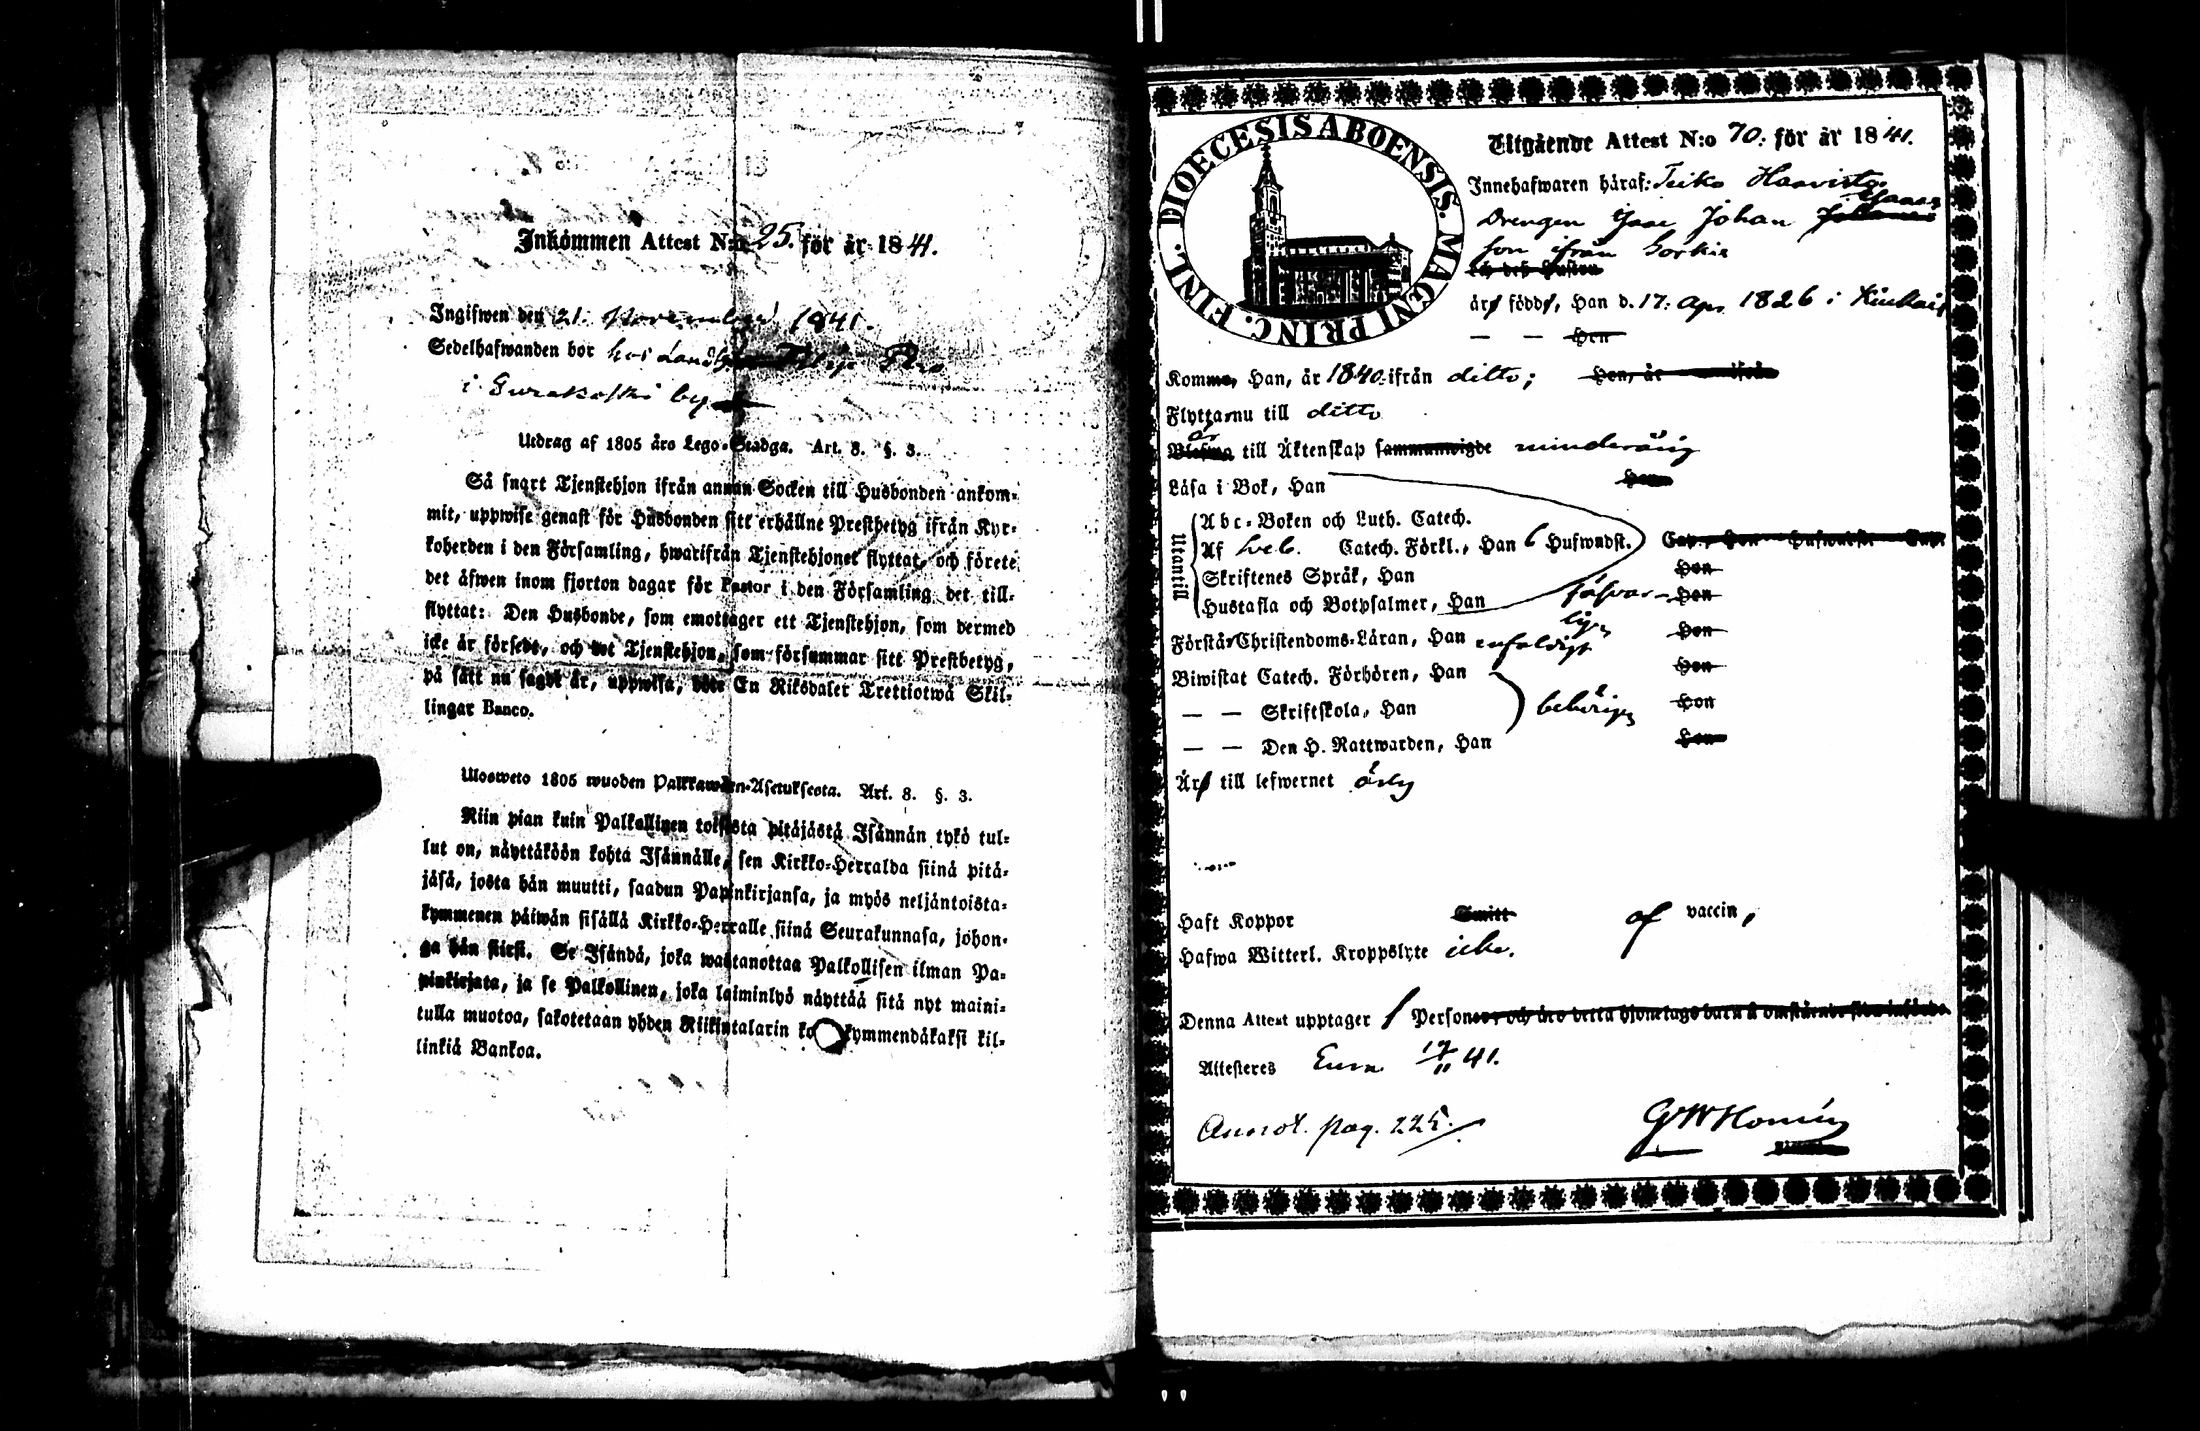 Inkommen Attest N:o 25. för år 1841.
Ingifwen den 21. November 1841.
Sedelhafwanden bor hos
i by
Utdrag af 1805 års Lego-Stadga. Art. 8. §. 3.
Så snart Tjenstehjon ifrån annan Socken till Husbonden ankom-
mit, uppwise genast för Husbonden sitt erhållne Prestbetyg ifrån Kyr-
koherden i den Församling, hwarifrån Tjenstehjonet flyttat, och förete
det äfwen inom fjorton dagar för Pastor i den Församling det till-
flyttat: Den Husbonde, som emottager ett Tjenstehjon, som dermed
icke är försedt, och det Tjenstehjon, som försummar sitt Prestbetyg,
på sätt nu sagdt är, uppwisa, böte En Riksdaler Trettiotwå Skil-
lingar Banco.
Ulosweto 1805 wuoden Palkkawäen-Asetuksesta. Art. 8. §. 3.
Niin pian kuin Palkollinen toisesta pitäjästä Isännän tykö tul-
lut on, näyttäköön kohta Isännälle, sen Kirkko-Herralda siinä pitä-
jäsä, josta hän muutti, saadun Papinkirjansa, ja myös neljäntoista-
kymmenen päiwän sisällä Kirkko-Herralle siinä Seurakunnasa, johon-
ga hän siirsi. Se Isändä, joka wastanottaa Palkollisen ilman Pa-
pinkirjata, ja se Palkollinen, joka laiminlyö näyttää sitä nyt maini-
tulla muotoa, sakotetaan yhden Riikintalarin kymmendäkaksi kil-
linkiä Bankoa.
FINL. DIOECESIS ABOENSIS. MAGNI PRINC.
Utgående Attest N:o 70: för år 1841.
Innehafwaren häraf: Haavisto
Drengen Isac Johan Isaacs
son ifrån Sorkis
är född, Han d. 17: Apr. 1826 i Kiukais
— — Hon
Komm, Han, år 1840: ifrån ditto; Hon, år ifrån
Flyttar nu till ditto
är till Äktenskap sammanwigde minderårig
Läsa i Bok, Han Hon
Utantill
Abc-Boken och Luth. Catech.
Af Sveb. Catech. Förkl., Han 6 Hufwudst.
Skriftenes Språk, Han Hon
Hustafla och Botpsalmer, Han försvar- Hon
ligen
Förstår Christendoms-Läran, Han enfaldigt Hon
Biwistat Catech. Förhören, Han Hon
— — Skriftskola, Han behörigen Hon
— — Den H. Nattwarden, Han Hon
Är till lefwernet ärlig
Haft Koppor Smitt af vaccin,
Hafwa Witterl. Kroppslyte icke.
Denna Attest upptager 1 Personer, och äro detta hjonelags barn å omstående sida införde.
Attesteres Eura 17/11 41.
Annot. pag. 225.